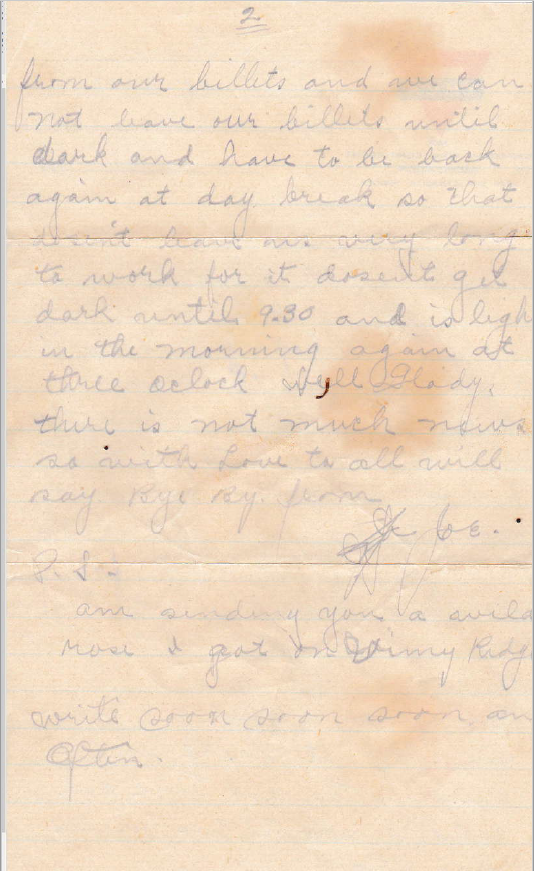 2
from our billets and we can
not leave our billets until
dark and have to be back
again at day break so that
dosen't leave us very long
to work for it dosent get
dark until 9.30 and is ligh
in the morning again at
three oclock Well Glady,
there is not much news
so with Love to all will
say Bye By. from
Joe.
P.S.
am sending you a wild
rose I got on Vimy Ridge
write soon soon soon an
Often.